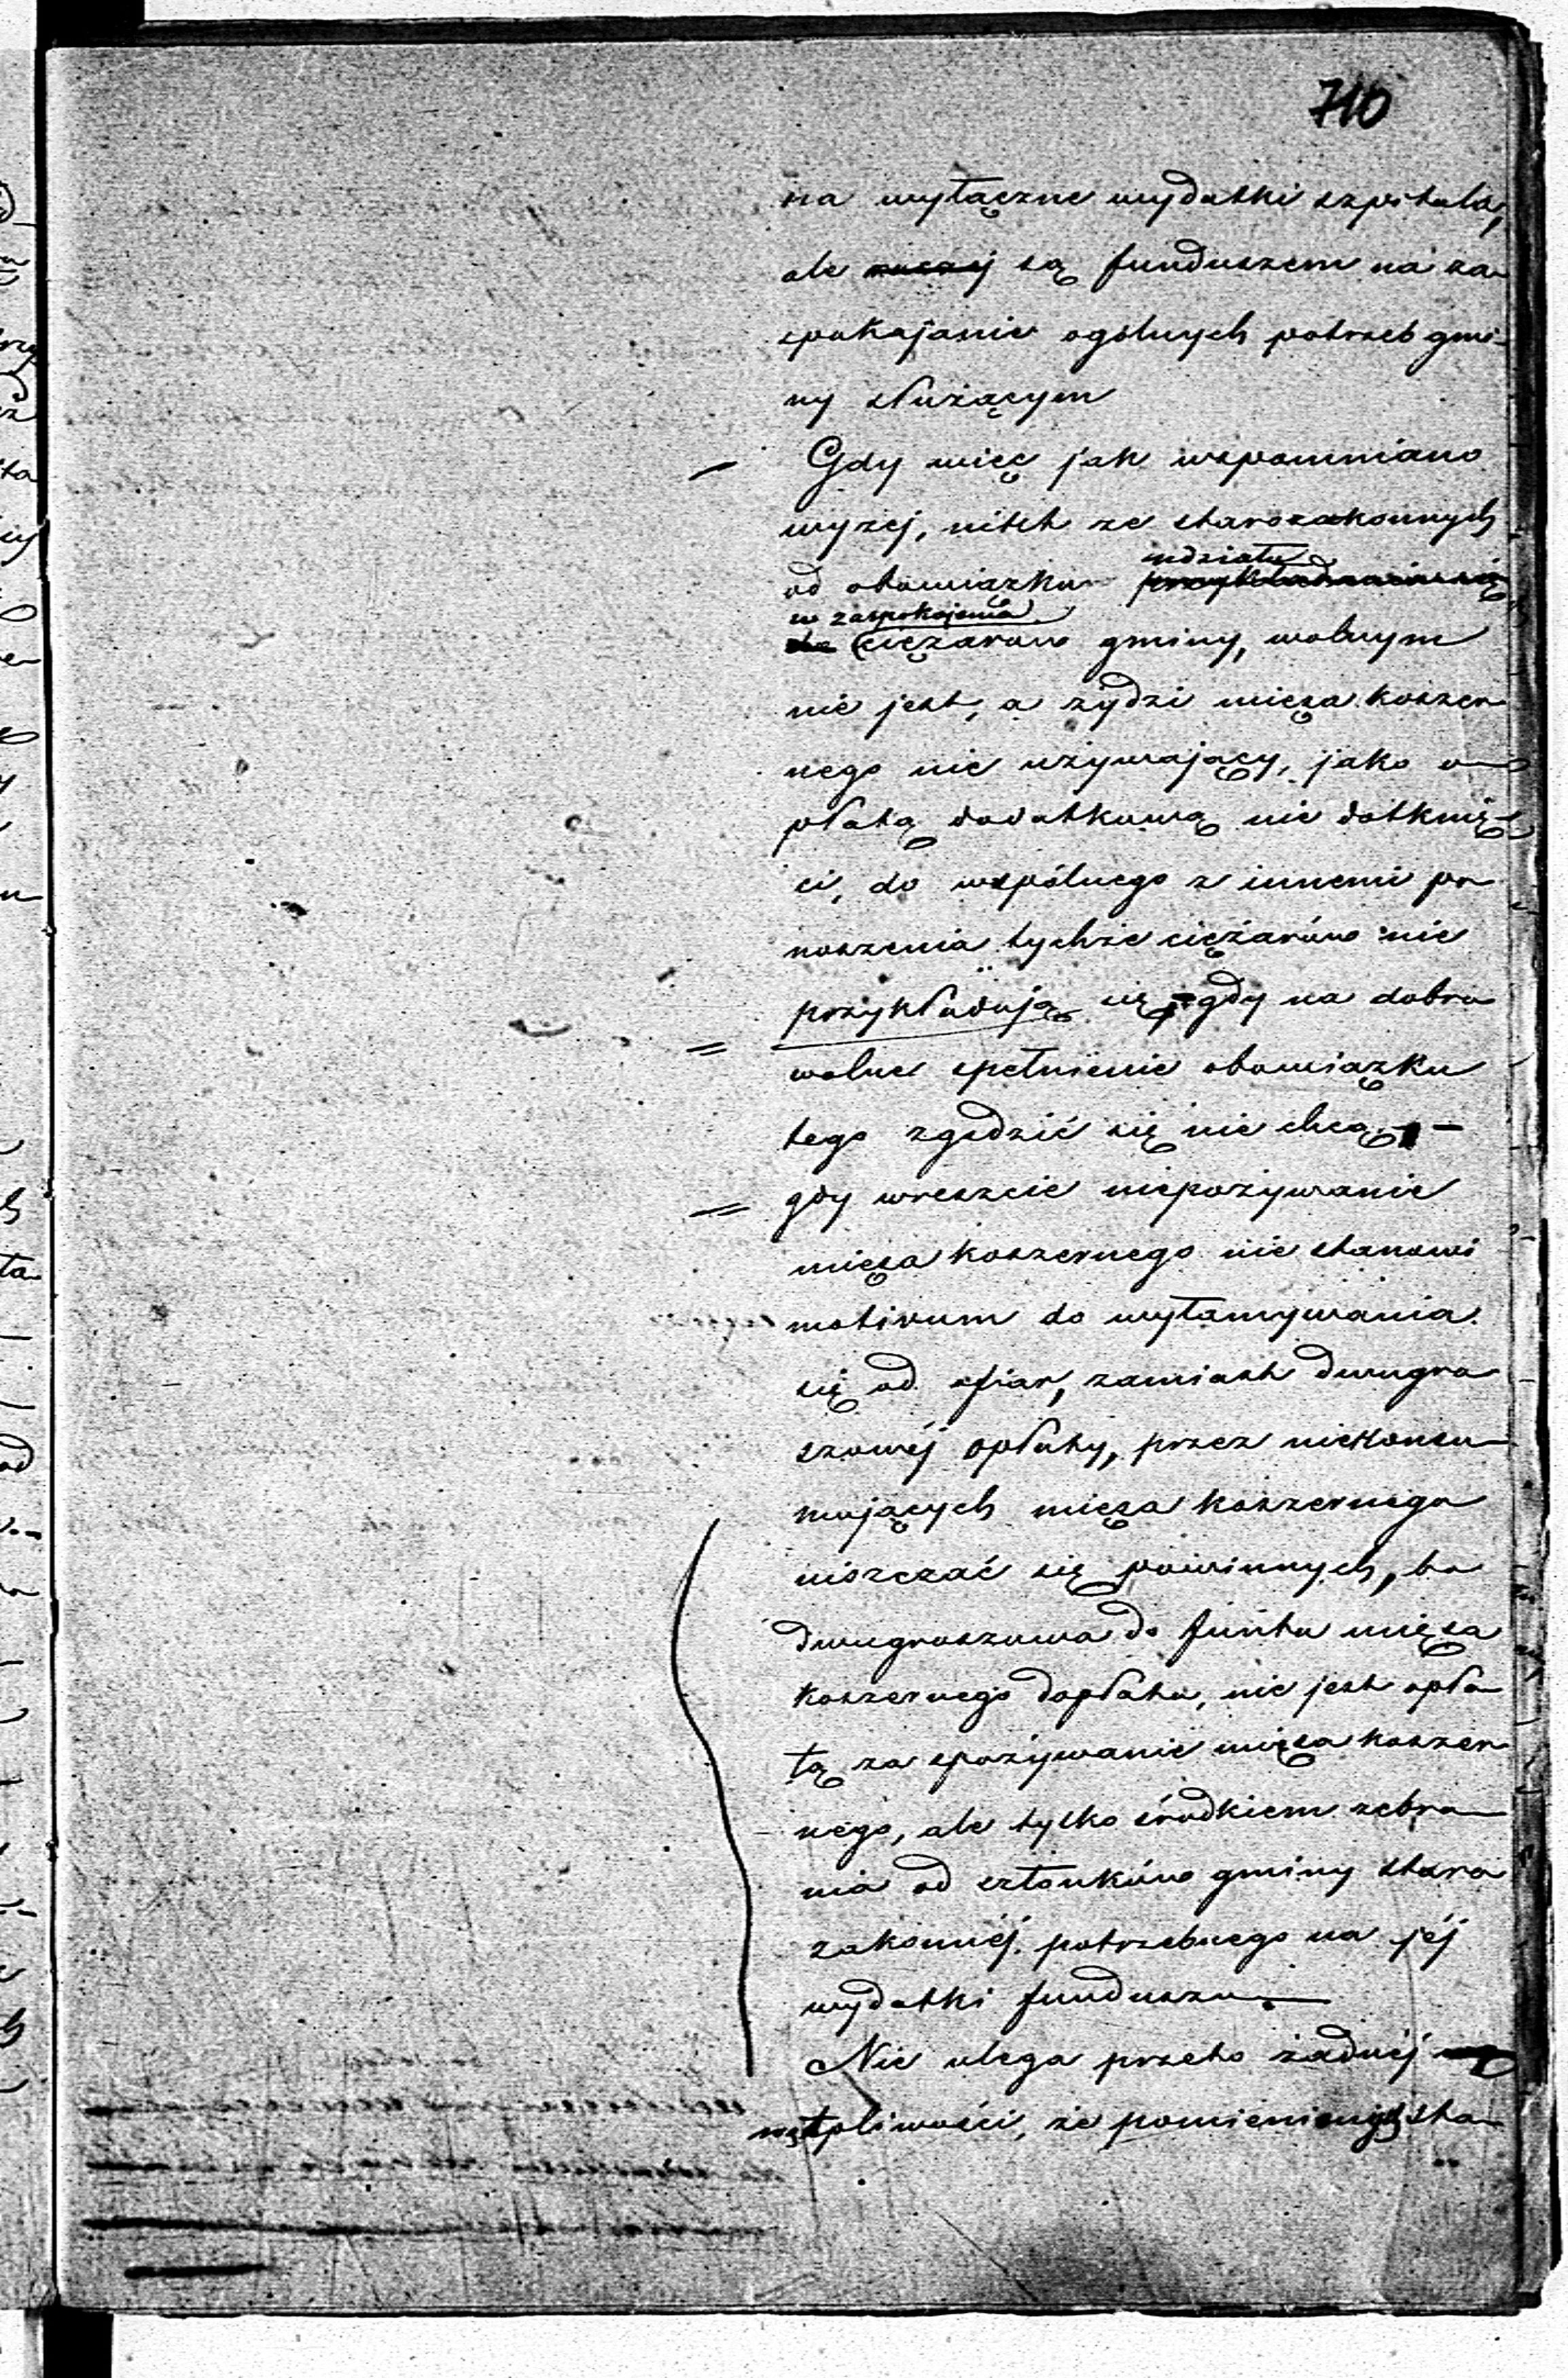 710
na wyłączne wydatki szpitala,
ale raczej są funduszem na za-
spokajanie ogólnych potrzeb gmi-
ny służącym
Gdy więc jak wspomniano
wyżej, nikt ze starozakonnych
udziału
od obowiązku przykładania się
w zaspokojenia
do ciężarów gminy, wolnym
nie jest, a żydzi mięsa koszer-
nego nie używający, jako o-
płatą dodatkową nie dotknię-
ci, do wspólnego z innemi po-
noszenia tychże ciężarów nie
przykładają się, gdy na dobro
wolne spełnienie obowiązku
tego zgodzić się nie chcą, –
gdy wreszcie niepożywanie
mięsa koszernego nie stanowi
motivum do wyłamywania
się od ofiar, zamiast dwugro
szowéj opłaty, przez niekonsu-
mujących mięsa koszernego
uiszczać się powinnych, bo
dwugroszowa do funta mięsa
koszernego dopłata, nie jest opła-
tą za spożywanie mięsa koszer-
nego, ale tylko środkiem zebra-
nia od członków gminy staro
zakonnéj potrzebnego na jéj
wydatki funduszu. —
Nie ulega przeto żadnéj
wątpliwości, że pomienionych sta-